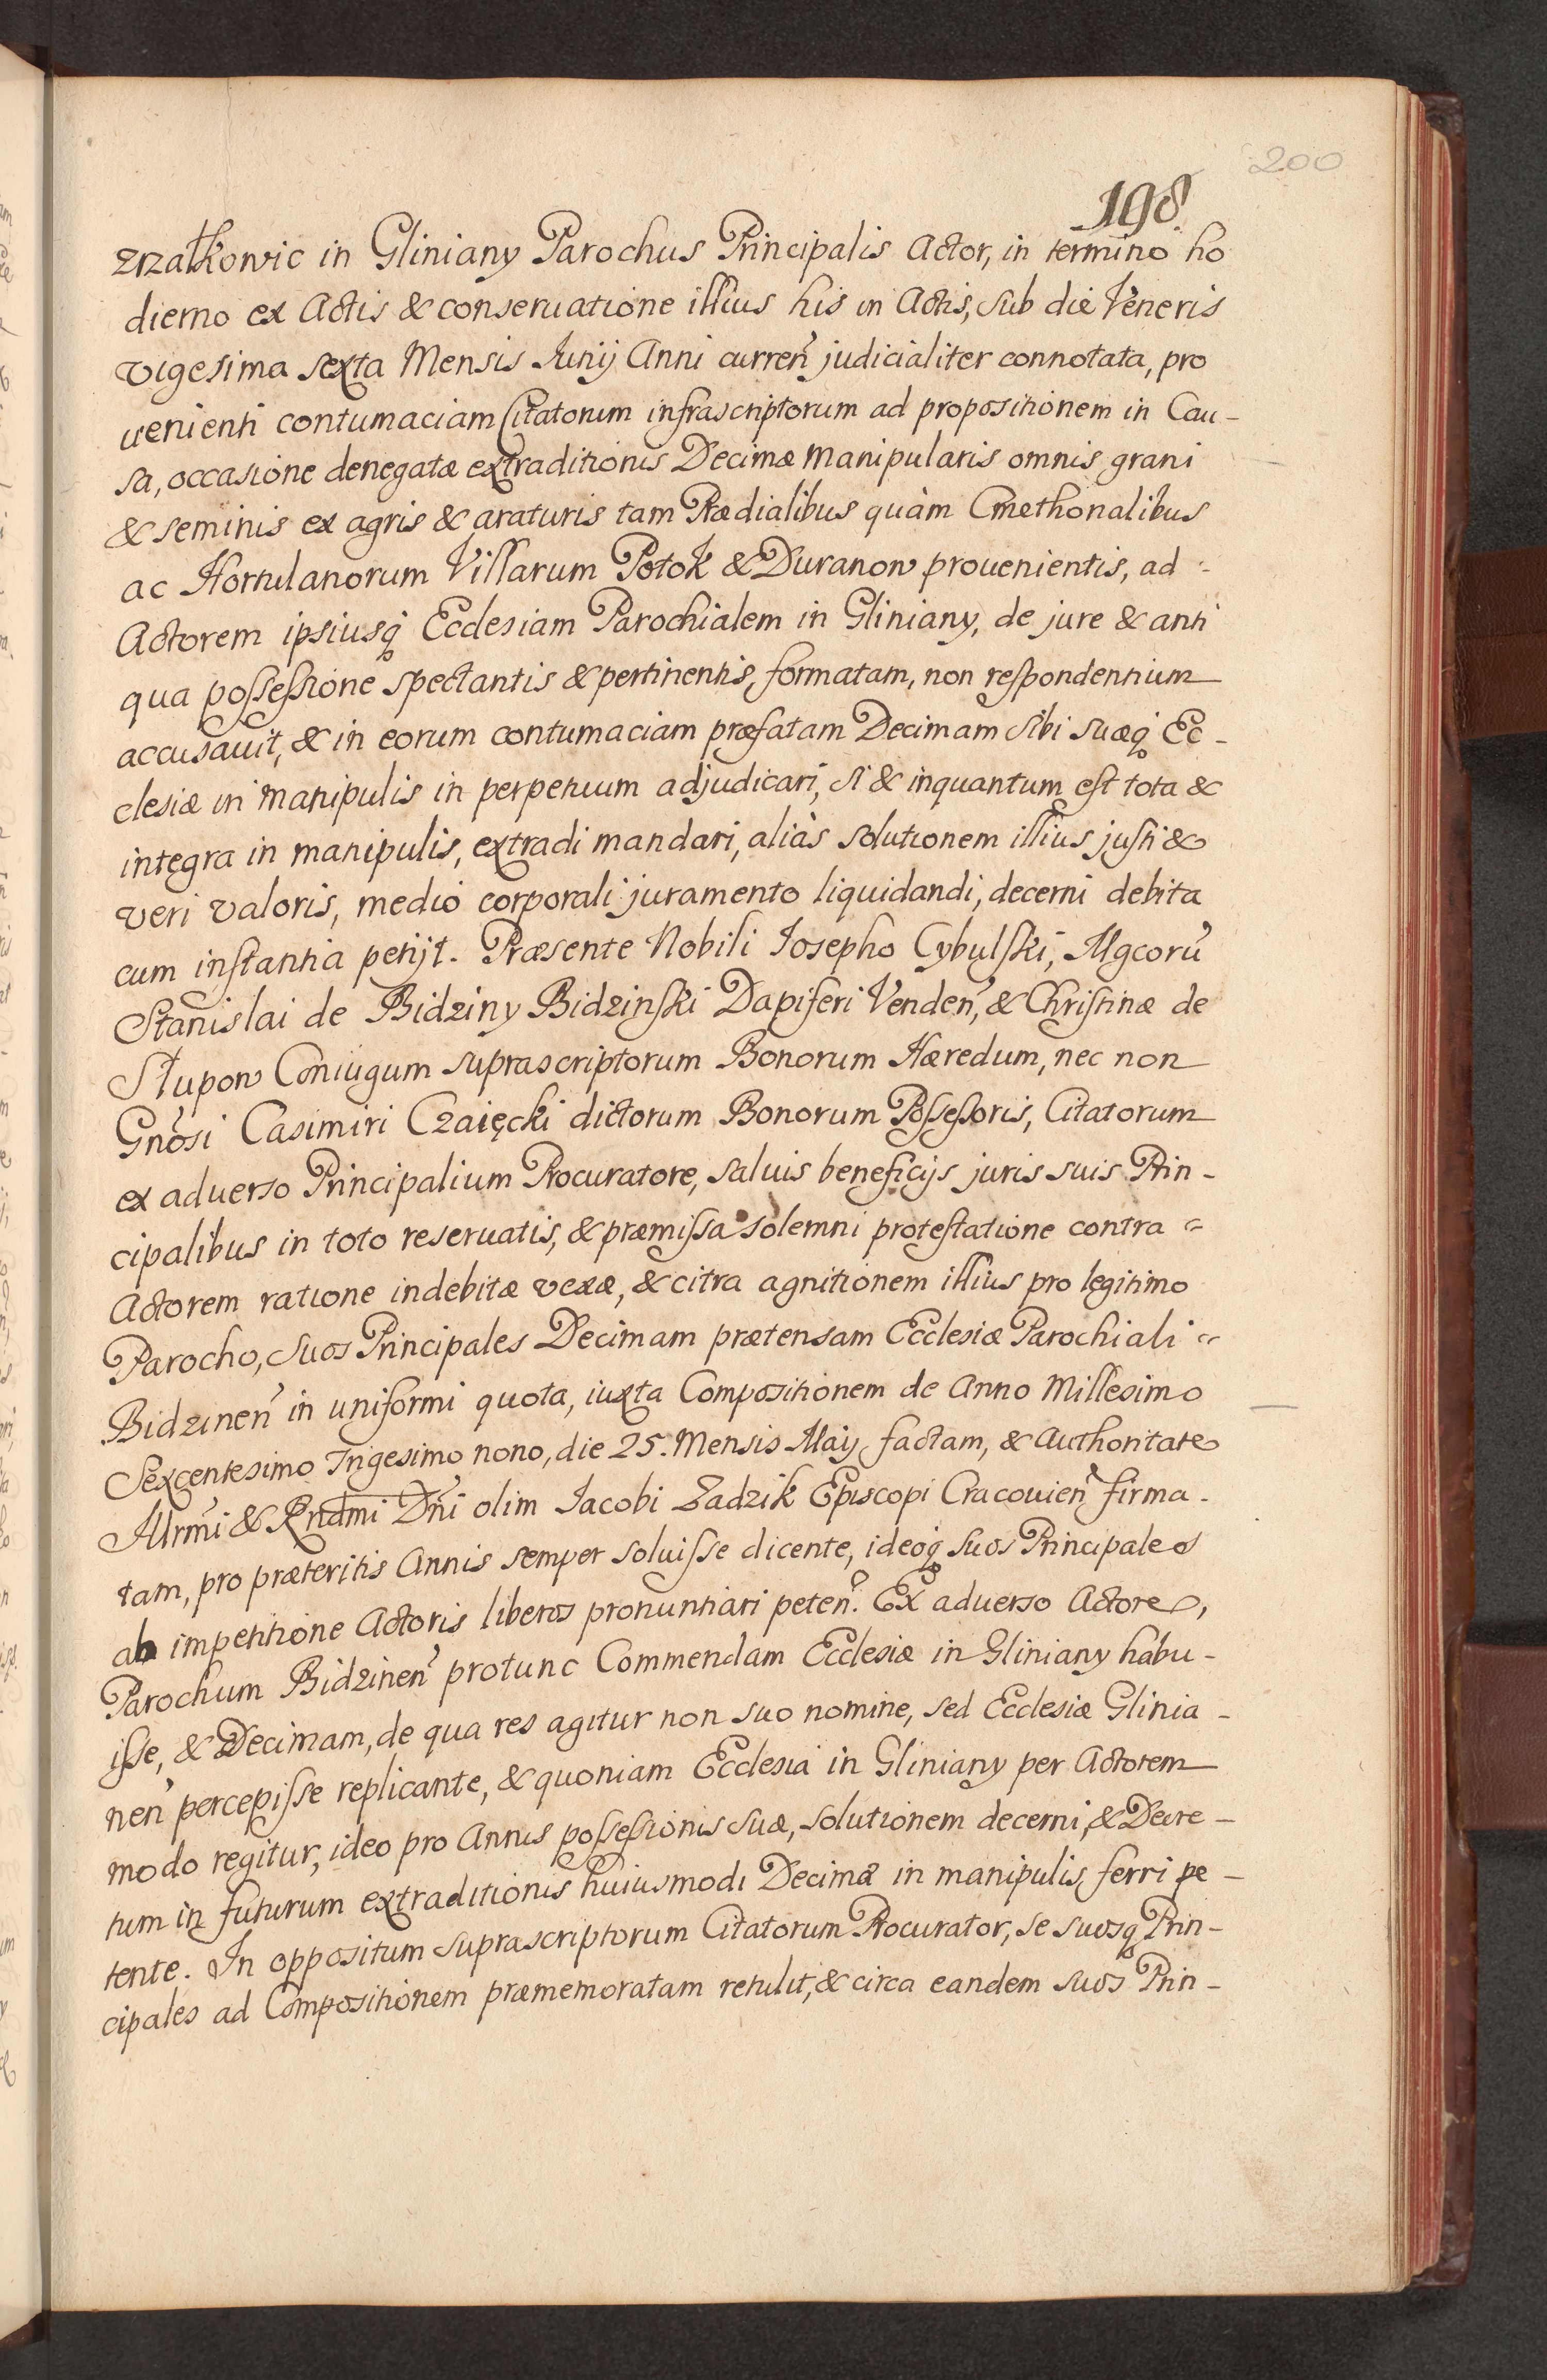 200
198
zrzałkowic in Gliniany Parochus Principalis Actor, in termino ho
dierno ex Actis & conseruatione illius his in Actis, sub die Veneris
vigesima sexta Mensis Junij Anni curren̄ judicialiter connotata, pro
uenienti contumaciam Citatorum infrascriptorum ad propositionem in Cau-
sa, occasione denegatæ extraditionis Decimæ manipularis omnis grani
& seminis ex agris & araturis tam Prædialibus quàm Cmethonalibus
ac Hortulanorum Villarum Potok & Duranow prouenientis, ad -
Actorem ipsiusq̃ Ecclesiam Parochialem in Gliniany, de jure & anti
qua possessione spectantis & pertinentis, formatam, non respondentium
accusauit, & in eorum contumaciam præfatam Decimam sibi suæq̃ Ec-
clesiæ in manipulis in perpetuum adjudicari, si & inquantum est tota &
integra in manipulis, extradi mandari, aliàs solutionem illius justi &
veri valoris, medio corporali juramento liquidandi, decerni debita
cum instantia petijt. Præsente Nobili Josepho Cybulski, Mgcorū
Stanislai de Bidziny Bidzinski Dapiferi Venden̄, & Christinæ de
Słupow Coniugum suprascriptorum Bonorum Hæredum, nec non
Gnōsi Casimiri Czaięcki dictorum Bonorum Possessoris, Citatorum
ex aduerso Principalium Procuratore, saluis beneficijs juris suis Prin-
cipalibus in toto reseruatis, & præmissa solemni protestatione contra =
Actorem ratione indebitæ vexæ, & citra agnitionem illius pro legitimo
Parocho, suos Principales Decimam prætensam Ecclesiæ Parochiali =
Bidzinen̄ in uniformi quota, iuxta Compositionem de Anno Millesimo
Sexcentesimo Trigesimo nono, die 25. Mensis Maij factam, & Authoritate
Illrm̄i & Rndm̄i Dn̄i olim Jacobi Zadzik Episcopi Cracouien̄ firma-
tam, pro præteritis Annis semper soluisse dicente, ideoq̃ suos Principales
ab impetitione Actoris liberos pronuntiari peten̄. Ex aduerso Actore,
Parochum Bidzinen̄ protunc Commendam Ecclesiæ in Gliniany habu-
isse, & Decimam, de qua res agitur non suo nomine, sed Ecclesiæ Glinia-
nen̄ percepisse replicante, & quoniam Ecclesia in Gliniany per Actorem
modo regitur, ideo pro Annis possessionis suæ, solutionem decerni, & Decre-
tum in futurum extraditionis huiusmodi Decimæ in manipulis, ferri pe-
tente. In oppositum suprascriptorum Citatorum Procurator, se suosq̃ Prin-
cipales ad Compositionem præmemoratam retulit, & circa eandem suos Prin-